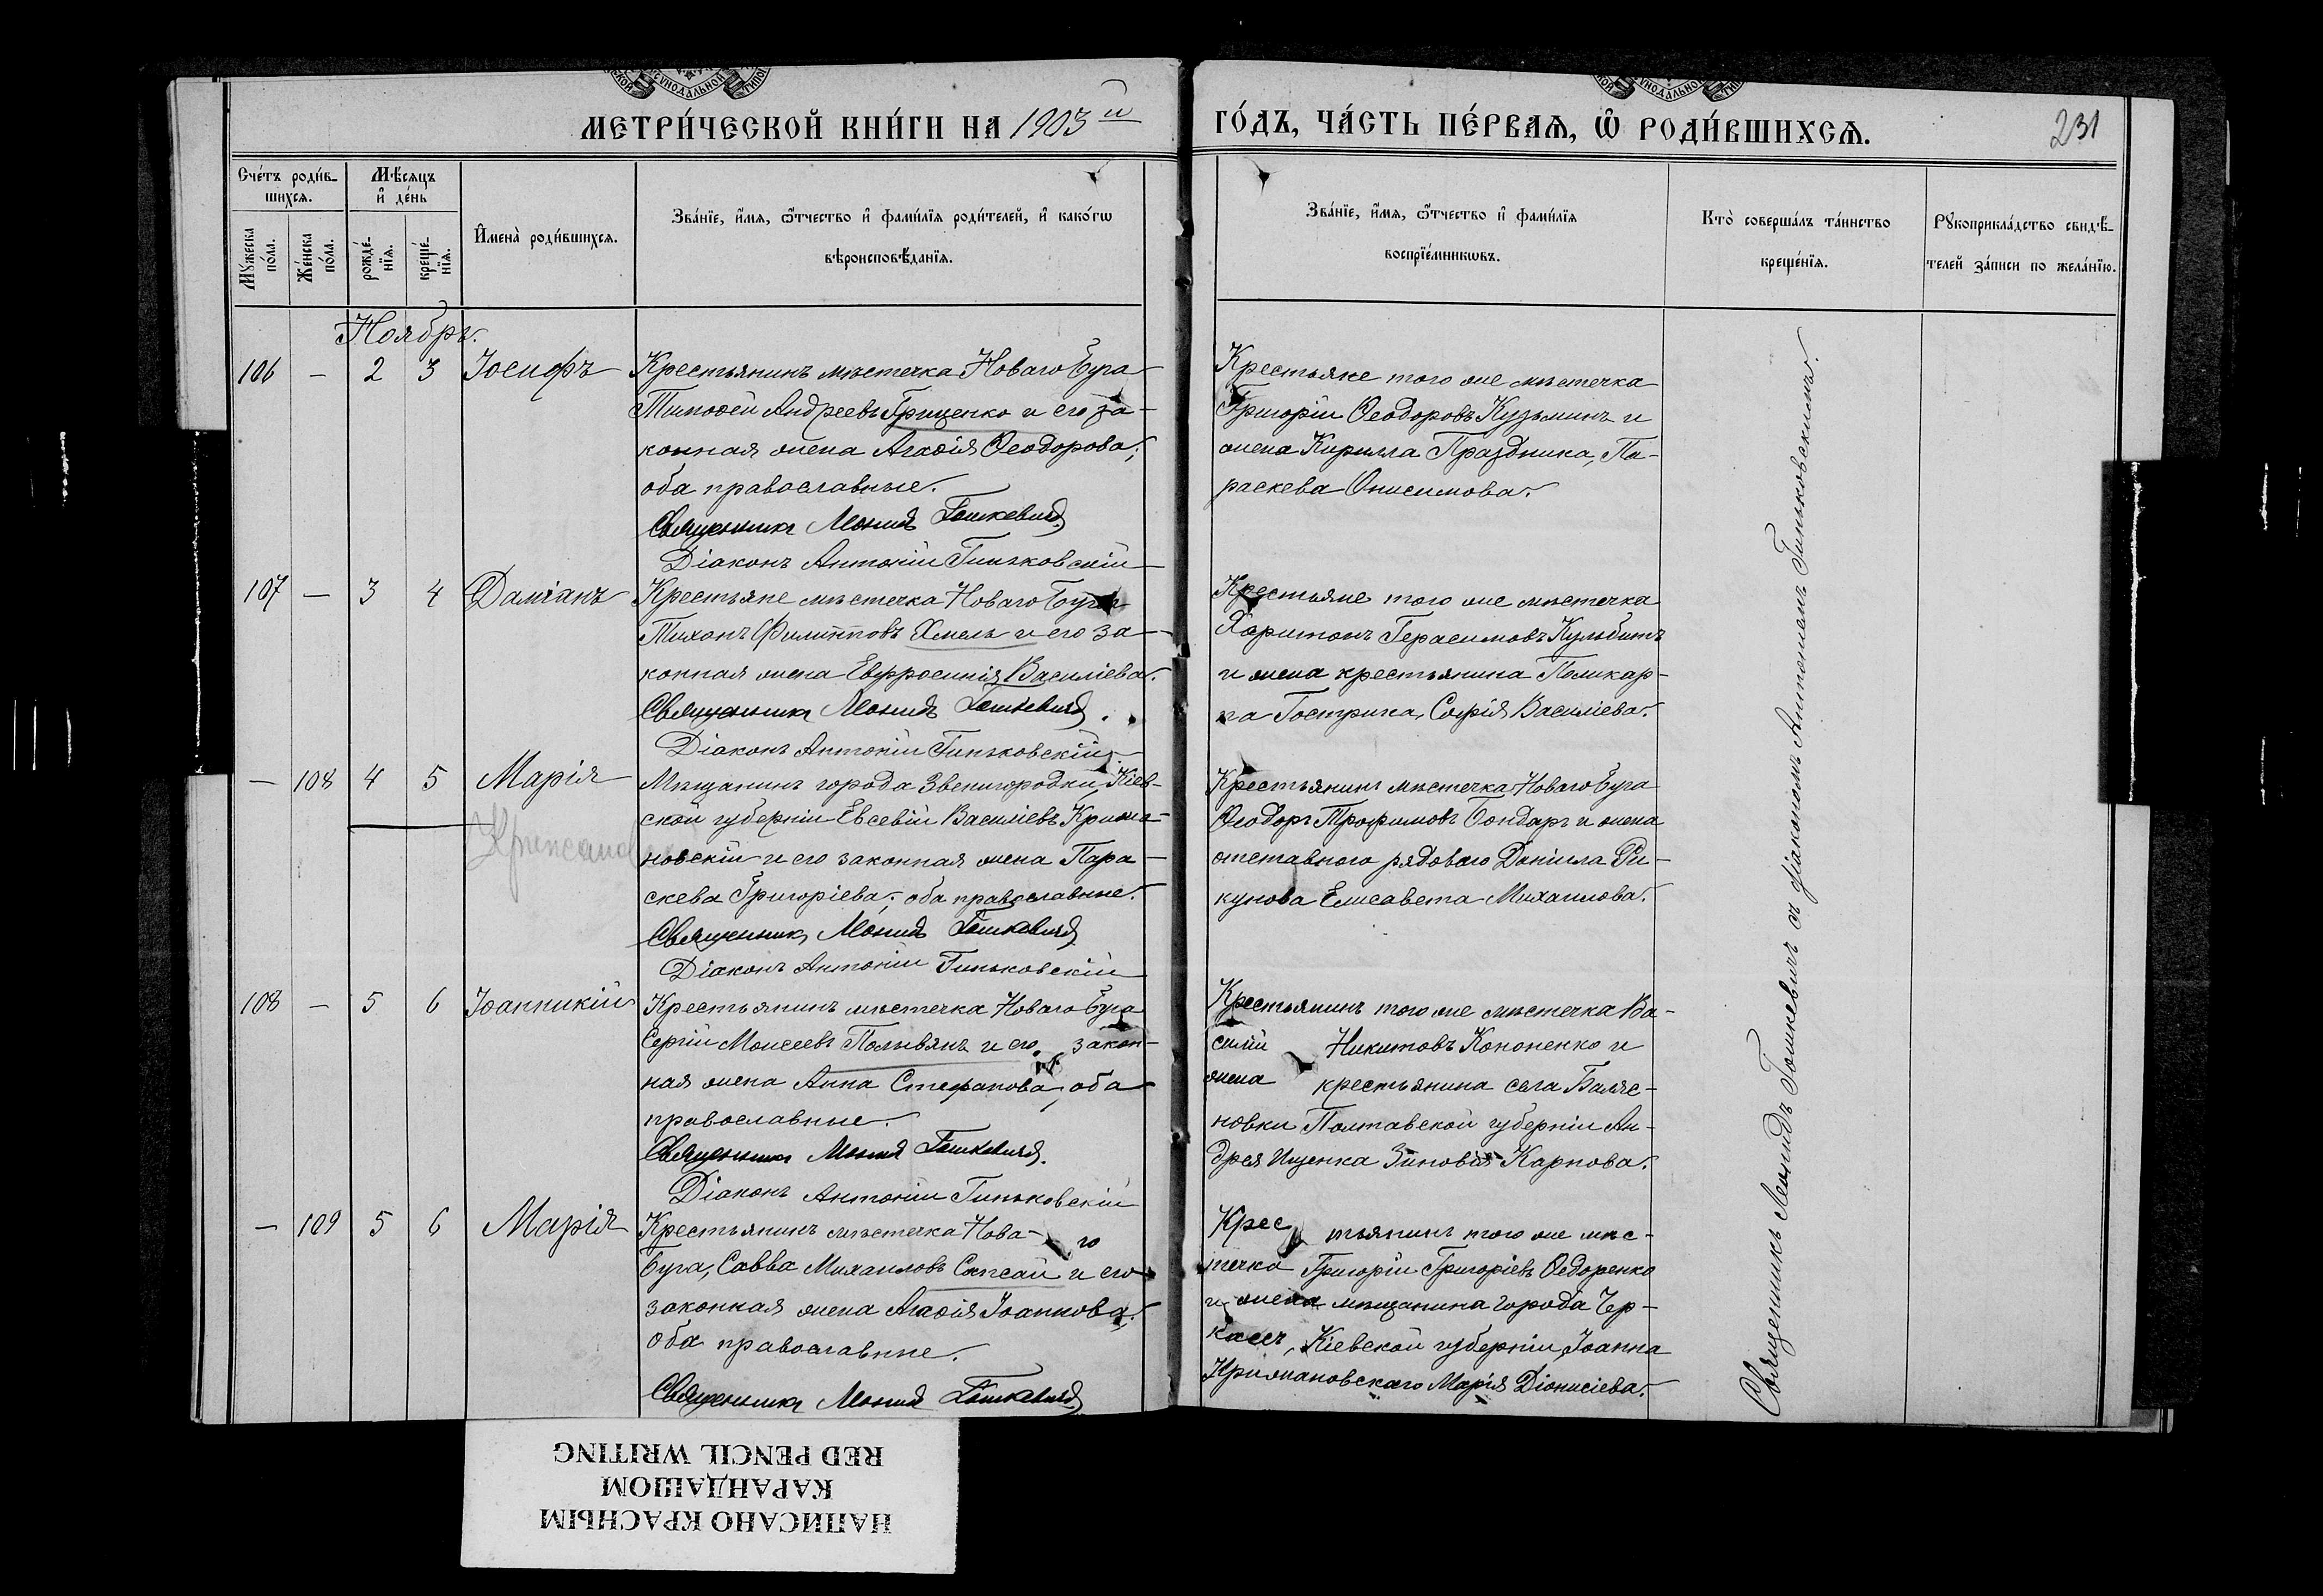 МЕТРИ́ЧЕСКОЙ КНИ́ГИ НА 1903й ГО́ДЪ, ЧА́СТЬ ПЕ́РВАѦ, Ѽ РОДИ́ВШИХСѦ.
231
Сче́тъ роди́в-
шихсѧ.
Мѣ́сяцъ
и҆ де́нь
Мꙋ́жеска
по́ла.
Же́нска
по́ла.
рожде́-
нїѧ.
креще́-
нїѧ.
И҆мена̀ роди́вшихсѧ.
Зва́нїе, и҆́мѧ, ѻ҆́тчество и҆ фами́лїѧ роди́телей, и҆ како́гѡ
вѣроисповѣ́данїѧ.
Зва́нїе, и҆́мѧ, ѻ҆́тчество и҆ фами́лїѧ
воспрїе́мникѡвъ.
Кто̀ соверша́лъ та́инство
креще́нїѧ.
Рꙋкоприкла́дство свидѣ́-
телей за́писи по жела́нїю.
Ноябрь.
106 — 2 3 Іосифъ
Крестьянинъ мѣстечка Новаго Буга
Тимоѳей Андреевъ Грищенко и его за-
конная жена Агаѳія Ѳеодорова;
оба православные.
Священникъ Леонидъ Гошкевичъ
Діаконъ Антоній Гиньковскій
Крестьяне того же мѣстечка
Григорій Ѳеодоровъ Кузьминъ и
жена Кирилла Праздника, Па-
раскева Онисимова.
107 — 3 4 Даміанъ
Крестьяне мѣстечка Новаго Буга
Тихонъ Филипповъ Хмель и его за-
конная жена Евфросинія Василіева.
Священникъ Леонидъ Гошкевичъ.
Діаконъ Антоній Гиньковскій
Крестьяне того же мѣстечка
Харитонъ Герасимовъ Кульбитъ
и жена крестьянина Поликар-
па Гострика, Софія Василіева.
— 108 4 5 Марія
Мѣщанинъ города Звенигородки, Кіев-
ской губерніи Евсевій Василіевъ Крижа-
новскій и его законная жена Пара-
скева Григоріева; оба православные.
Священникъ Леонидъ Гошкевичъ
Діаконъ Антоній Гиньковскій
Крестьянинъ мѣстечка Новаго Буга
Ѳеодоръ Трофимовъ Бондарь и жена
отставного рядового Даніила Ри-
кунова Елисавета Михаилова.
108 — 5 6 Іоанникій
Крестьянинъ мѣстечка Новаго Буга
Сергій Моисеевъ Поливянъ и его закон-
ная жена Анна Стефанова, оба
православные.
Священникъ Леонидъ Гошкевичъ.
Діаконъ Антоній Гиньковскій
Крестьянинъ того же мѣстечка Ва-
силій Никитовъ Кононенко и
жена крестьянина села Баляс-
новки Полтавской губерніи Ан-
дрея Ищенка Зиновія Карпова.
— 109 5 6 Марія
Крестьянинъ мѣстечка Нова-го
Буга, Савва Михаиловъ Сапсай и его
законная жена Агаѳія Іоаннова,
оба православные.
Священникъ Леонидъ Гошкевичъ
Крес тьянинъ того же мѣс-
течка Григорій Григоріевъ Ѳедоренко
и жена мѣщанина города Чер-
кассъ, Кіевской губерніи, Іоанна
Крижановскаго Марія Діонисіева.
Священникъ Леонидъ Гошкевичъ съ діакономъ Антоніемъ Гиньковскимъ.
НАПИСАНО КРАСНЫМ
КАРАНДАШОМ
RED PENCIL WRITING